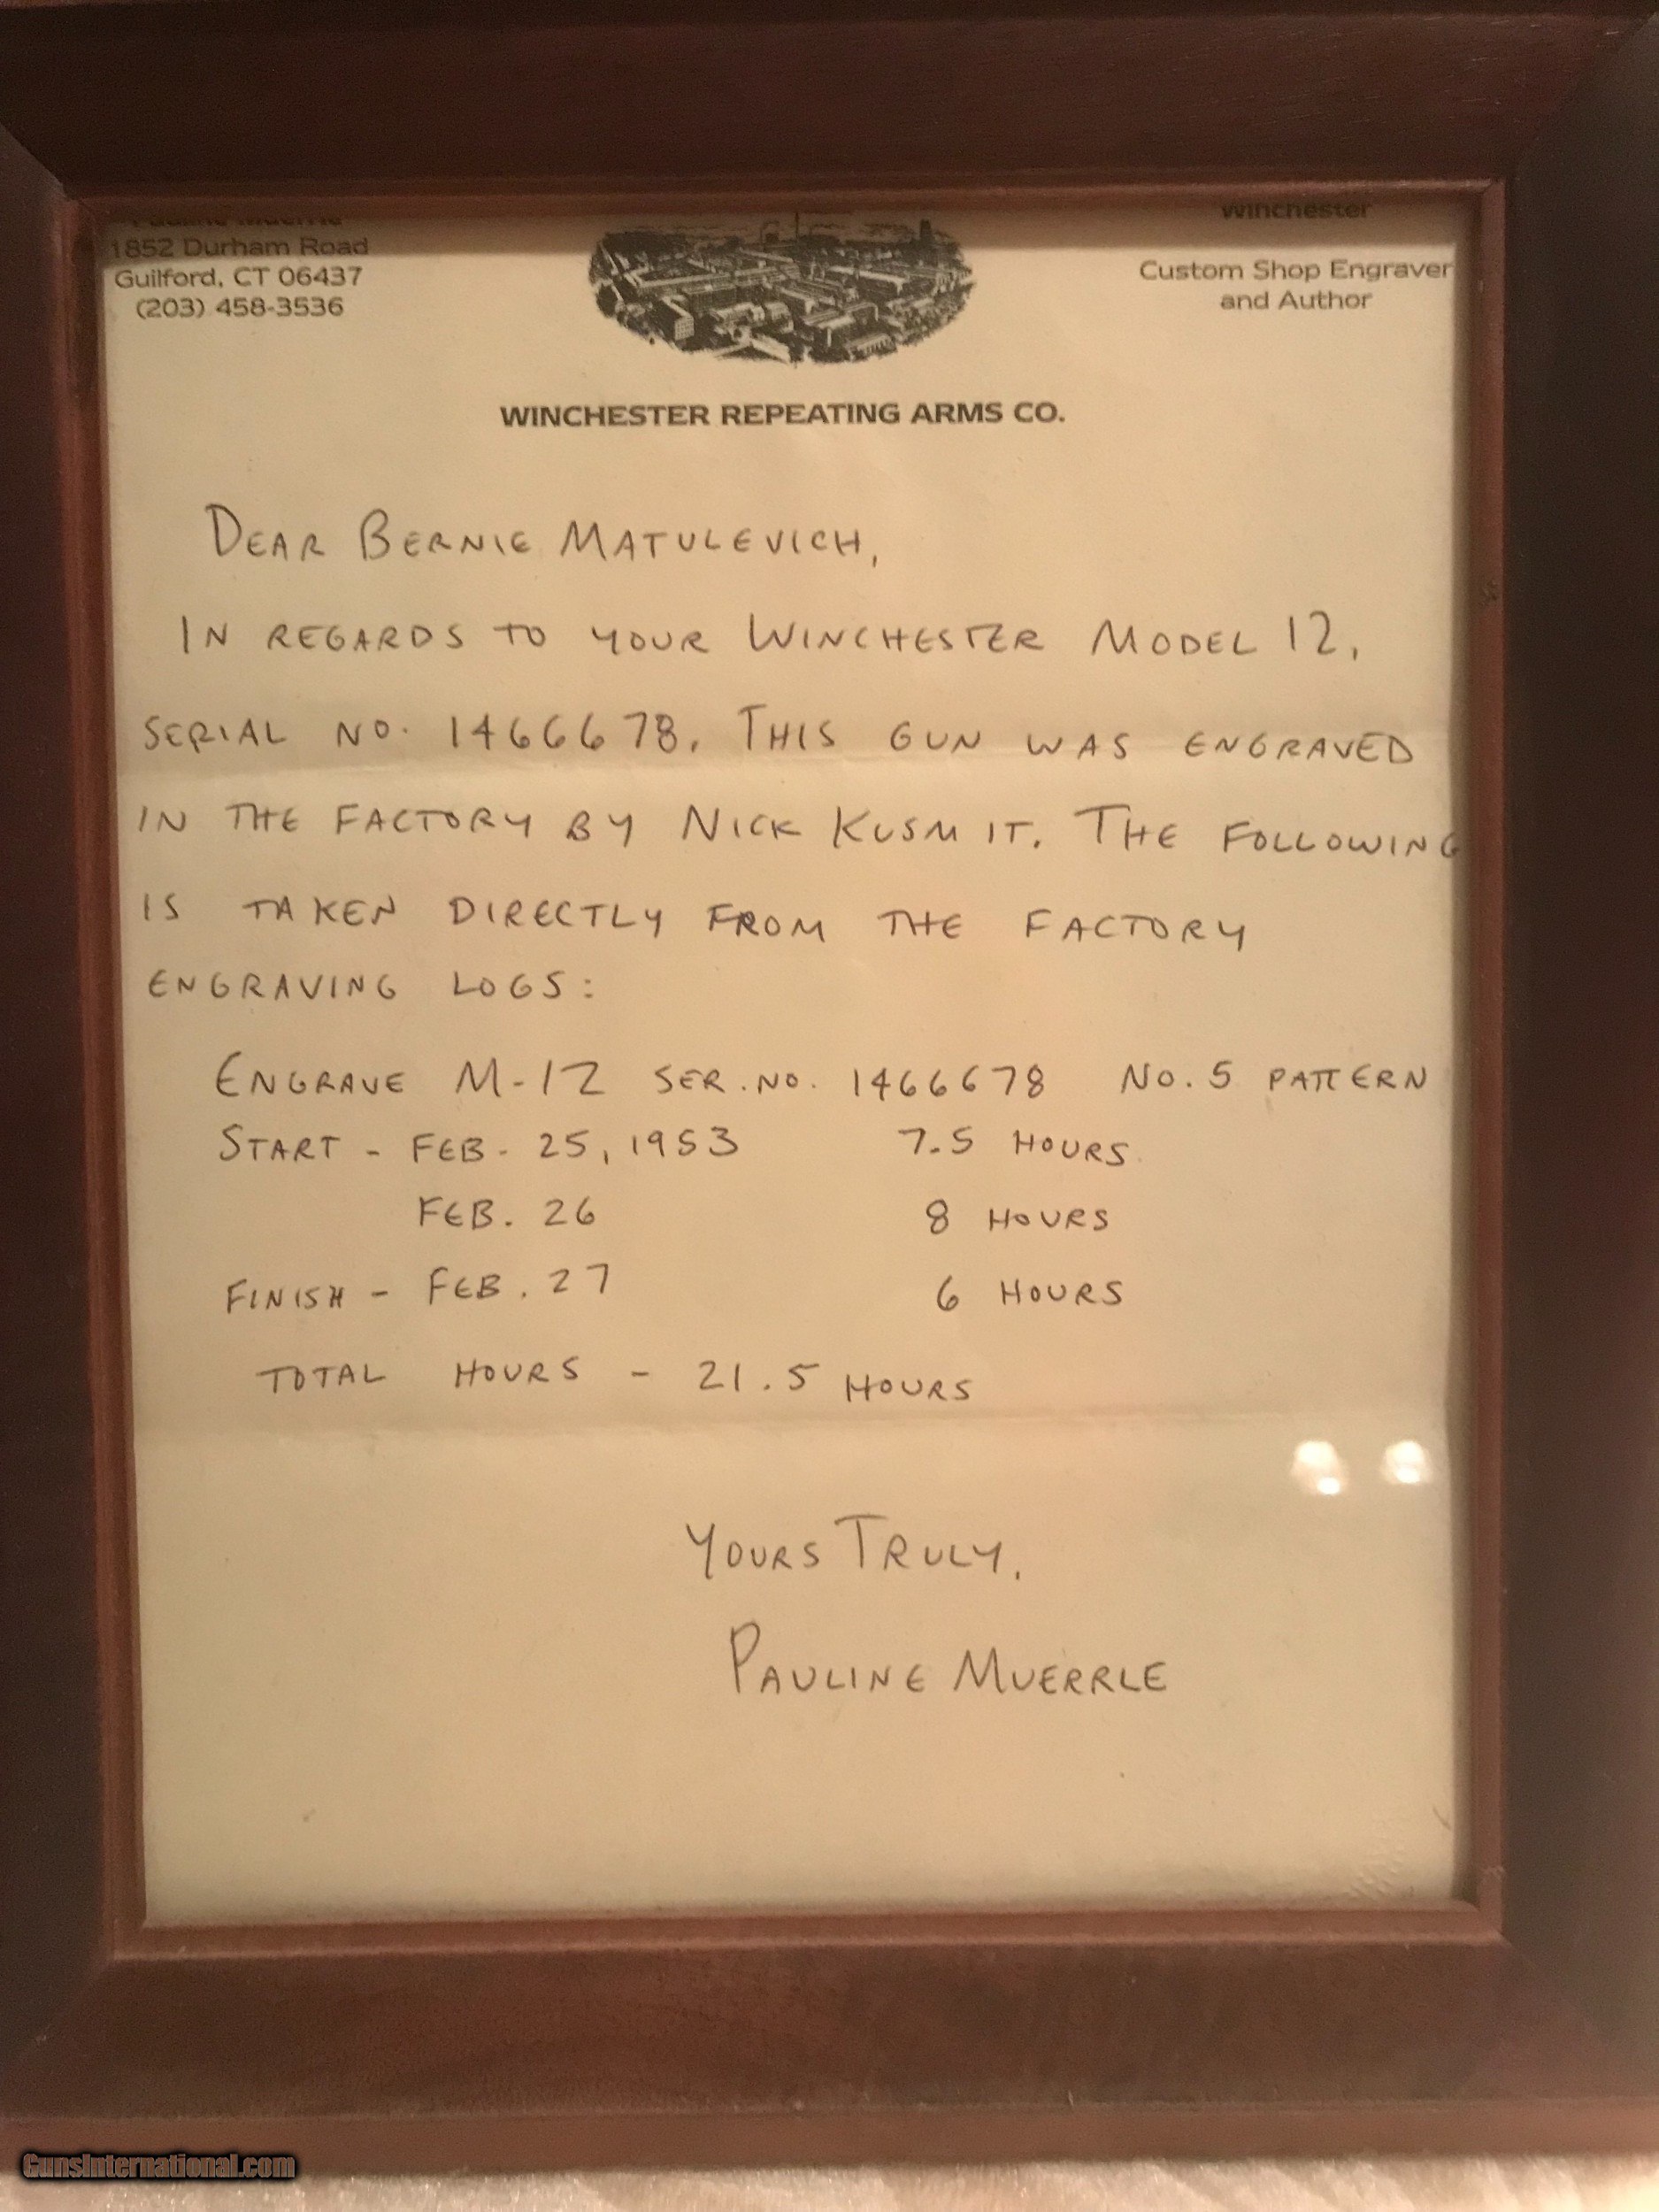 Pauline Muerrle
1852 Durham Road
Guilford, CT 06437
(203) 458-3536
Winchester
Custom Shop Engraver
and Author
WINCHESTER REPEATING ARMS CO.
DEAR BERNIE MATULEVICH,
IN REGARDS TO YOUR WINCHESTER MODEL 12,
SERIAL NO. 1466678. THIS GUN WAS ENGRAVED
IN THE FACTORY BY NICK KUSMIT. THE FOLLOWING
IS TAKEN DIRECTLY FROM THE FACTORY
ENGRAVING LOGS:
ENGRAVE M-12 SER. NO. 1466678 NO. 5 PATTERN
START - FEB. 25, 1953 7.5 HOURS
FEB. 26 8 HOURS
FINISH - FEB. 27 6 HOURS
TOTAL HOURS - 21.5 HOURS
YOURS TRULY,
PAULINE MUERRLE
GunsInternational.com